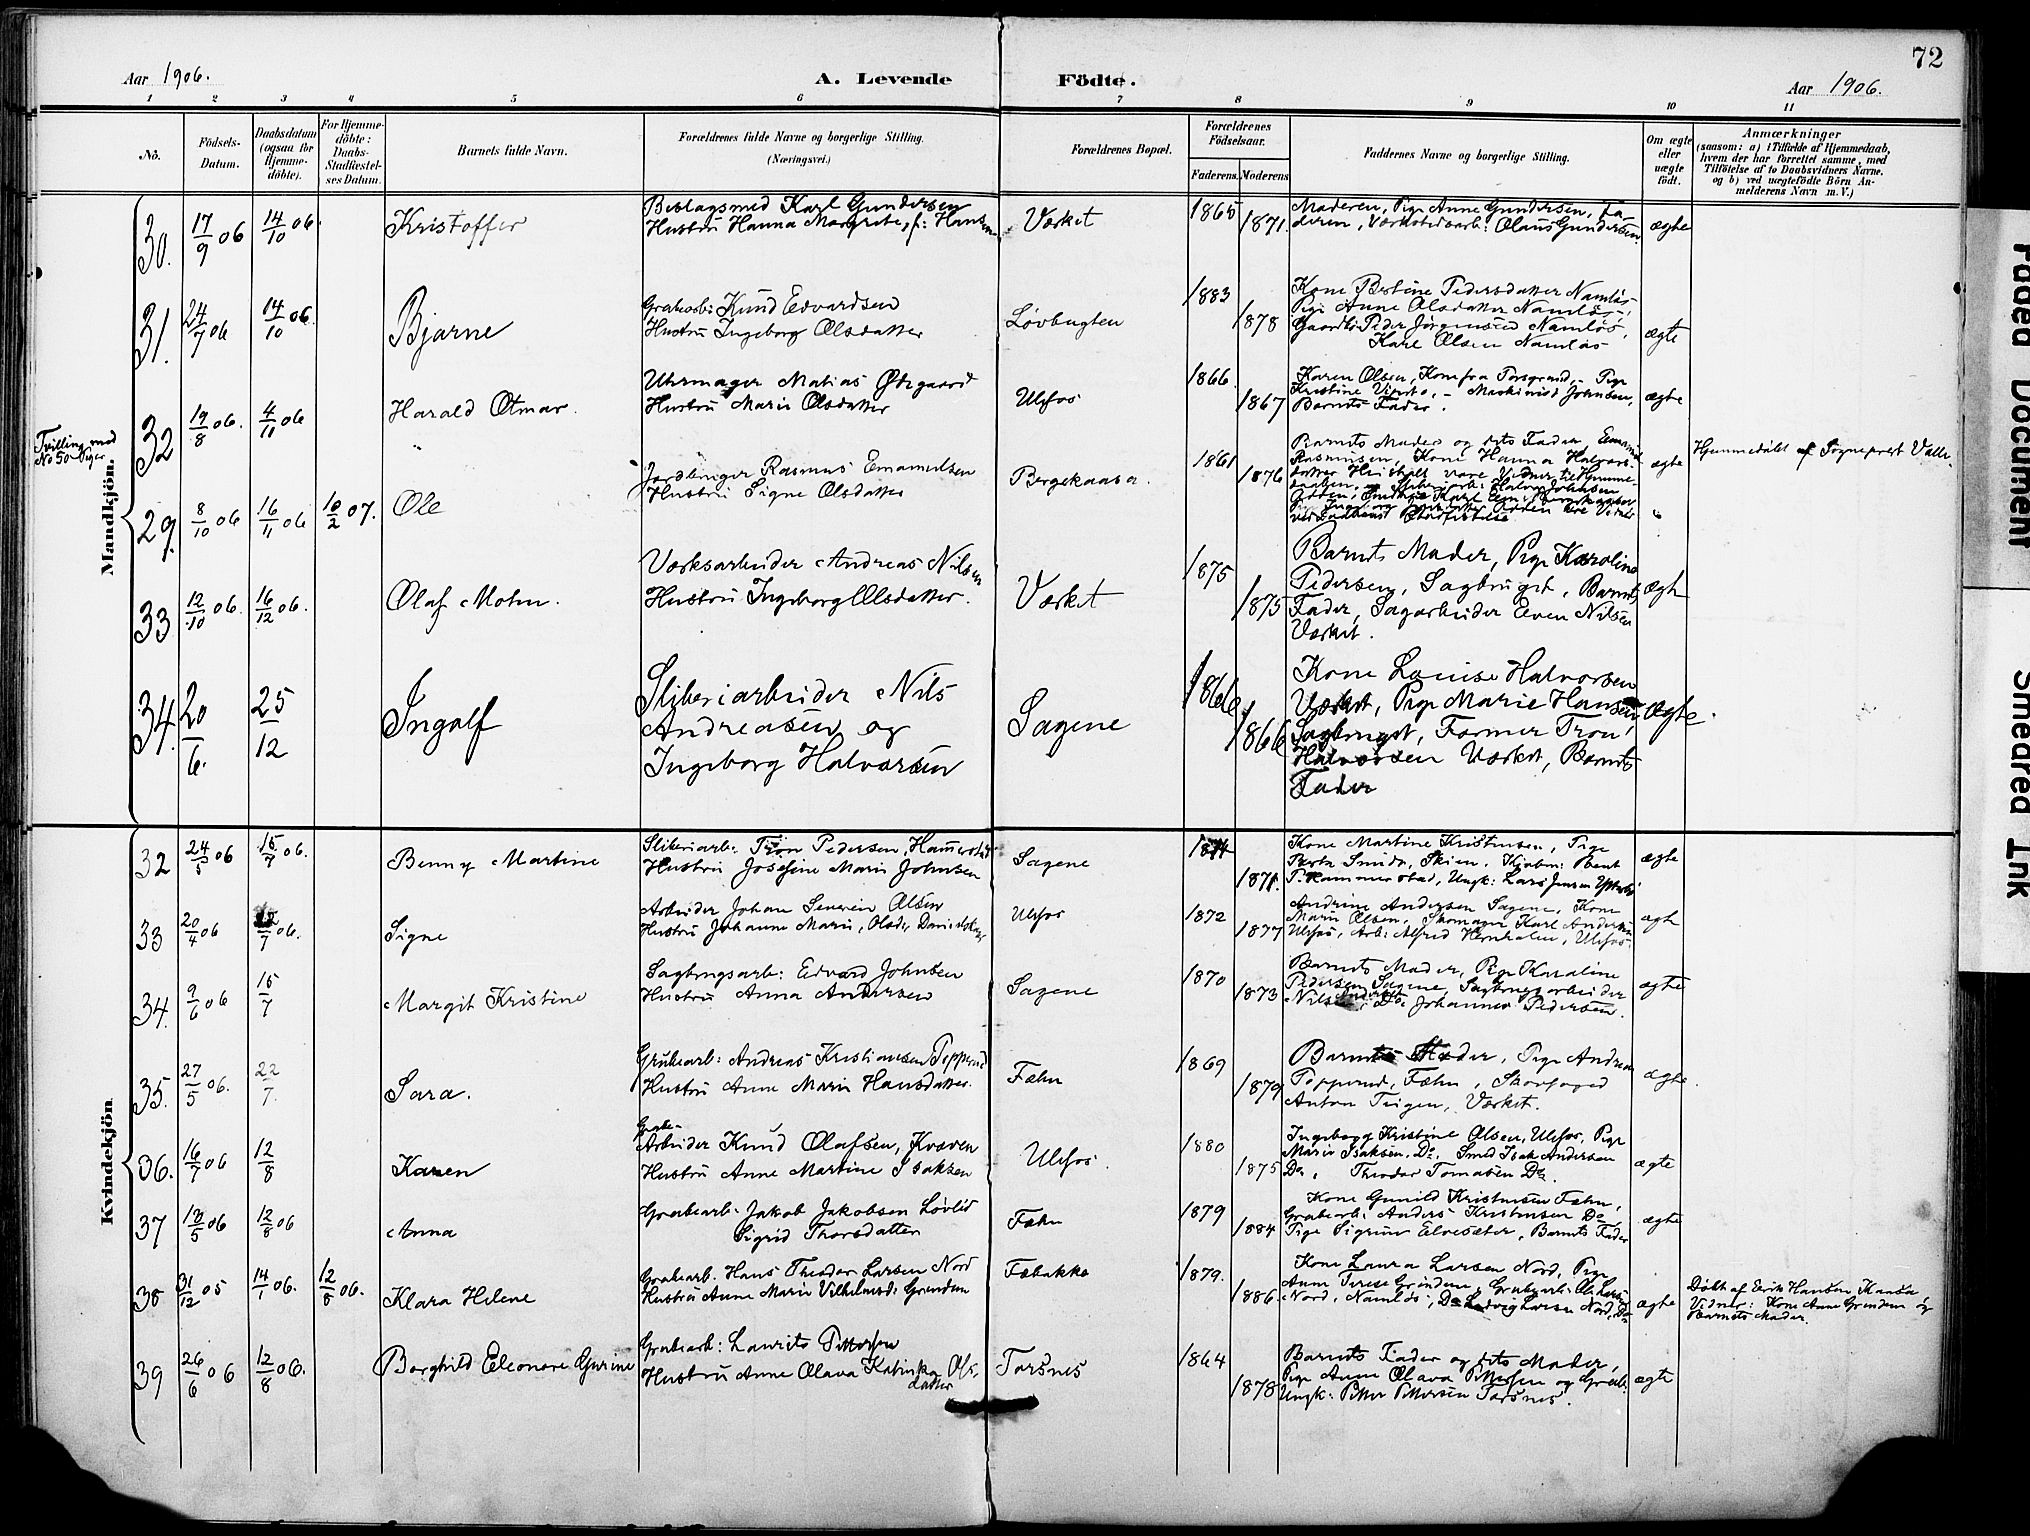 72
Aar 1906.
A. Levende Födte.
Aar 1906.
1 2 3 4 5 6 7 8 9 10 11
No.
Födsels-
Datum.
Daabsdatum
(ogsaa for
Hjemme-
döbte).
For Hjemme-
döbte:
Daabs-
Stadfæstel-
ses Datum.
Barnets fulde Navn.
Forældrenes fulde Navne og borgerlige Stilling.
(Næringsvei.)
Forældrenes Bopæl.
Forældrenes
Födselsaar.
Faderens. Moderens
Faddernes Navne og borgerlige Stilling.
Om ægte
eller
uægte
födt.
Anmærkninger
(saasom: a) i Tilfælde af Hjemmedaab,
hvem der har forrettet samme, med
Tilföielse af to Daabsvidners Navne.
og b) ved uægtefödte Börn An-
melderens Navn m. V.)
Mandkjön.
30. 17/9 06 14/10 06. Kristoffer
Karl Gundersen
Hustru Hanna Margrete, f: Hansen
Værket
1865 1871.
Moderen, Pige Anne Gundersen, Fa-
deren, Værkstedsarb: Olaus Gundersen.
ægte
31. 24/7 06 14/10 06. Bjarne
Grubearb: Knud Edvardsen
Hustru Ingeborg Olsdatter
Løvbugten
1883 1878
Kone Bertine Pedersdatter Namløs
Pige Anne Olsdatter Namløs,
Gaardbr: Peder Jørgensen Namløs,
Karl Olsen Namløs
ægte
32 19/8 06. 4/11 06 Harald Otmar.
Uhrmager Matias Ødegaard
Hustru Marie Olsdatter
Ulefos
1866. 1867
Karen Olsen, Kone fra Porsgrund, Pige
Kristine, Maskinist Johnsen,
Barnets Fader.
ægte
Tvilling med
No 50 Piger
29. 8/10 06 16/11 06 10/2 07. Ole
Rasmus Emanuelsen
Hustru Signe Olsdatter
Bergekaasa.
1861 1876
Barnets Moder og dets Fader, Emanuel
Rasmusen, Kone Hanna Halvors-
datter
ægte
Hjemmedøbt af Sogneprest
33 12/10 06. 16/12 06. Olaf Mohn.
Værksarbeider Andreas Nilsen
Hustru Ingeborg Olsdatter.
Værket
1875 1875
Barnets Moder, Pige Karoline
Pedersen, Sagbruget, Barnets
Fader, Sagarbeider Even Nilsen
Værket.
ægte
34. 20/6. 25/12 Ingolf
Sliberiarbeider Nils
Andreasen og
Ingeborg Halvorsen
Sagene
1866. 1866
Kone Louise Halvorsen
Værket, Pige Marie Hansen
Sagbruget, Former Tron
Halvorsen Værket, Barnets
Fader
ægte.
Kvindekjön
32 24/5 06 15/7 06. Benny Martine
Sliberiarb: Tron Pedersen, Hammerstad
Hustru Josefine Marie Johnsen
Sagene
1871.
Kone Martine Kristensen, Pige
Berta Smidt, Skien, Bent
P. Hammerstad, Ungk: Lars Jensen
ægte
33 20/4 06 /7 06. Signe
Arbeider Johan Severin Olsen
Hustru Johanne Marie, Olsdtr
Ulefos
1872 1877
Andrine Andersen Sagene, Kone
Marie Olsen, Skomager Karl Andersen
Ulefos, Arb: Alfred Ulefos.
ægte
34. 9/6 06 15/7 Margit Kristine
Sagbrugsarb: Edvard Johnsen
Hustru Anna Andersen
Sagene
1870 1873
Barnets Moder, Pige Karoline
Pedersen Sagene, Sagbrugsarbeider
Nils Do: Johannes Pedersen.
ægte
35. 27/5 06. 22/7. Sara.
Grubearb: Andreas Kristiansen
Hustru Anne Marie Hansdatter.
Fæhn
1869 1879
Barnets Moder, Pige Andrea
Fæhn, Skovfoged
Anton Teigen, Værket.
ægte.
36. 16/7 06 12/8 Karen
Grube-
Arbeider Knud Olafsen, Kvæven
Hustru Anne Martine Isaksen
Ulefos.
1880 1875
Ingeborg Kristine Olsen, Ulefos, Pige
Marie Isaksen, Do. Smed Isak Andersen
Do, Theodor Tomasen Do.
ægte
37 13/5 06 12/8 06 Anna
Grubearb: Jakob Jakobsen Løvlid
Sigrid Thorsdatter
Fæhn
1879 1884
Kone Gunild Kristensen Fæhn,
Grubearb: Anders Kristensen Do
Pige Sigrun Elvesæter, Barnets Fader
ægte
38 31/12 05 14/1 06. 12/8 06. Klara Helene
Grubearb. Hans Theodor Larsen Nord
Hustru Anne Marie Vilhelmsd. Grenden
Fæbakke
1879. 1886.
Kone Laura Larsen Nord, Pige
Anne Terese Grenden, Grubearb: Ole Larsen
Nord, Namløs, Do Ludvig Larsen Nord, Do
ægte
Døbt af Eirik Hansen Kaasa
Vidner: Kone Anne Grenden og
Barnets Moder.
39 26/6 06 12/8 06. Borghild Eleonore Gurine
Grubearb: Laurits Pettersen
Hustru Anne Olava Katinka Ols-
datter
Torsnes
1864 1878
Barnets Fader og dets Moder,
Pige Anne Olava Pettersen og Grub:
Ungk: Petter Pettersen Torsnes.
ægte
Faded Document
Smeared Ink